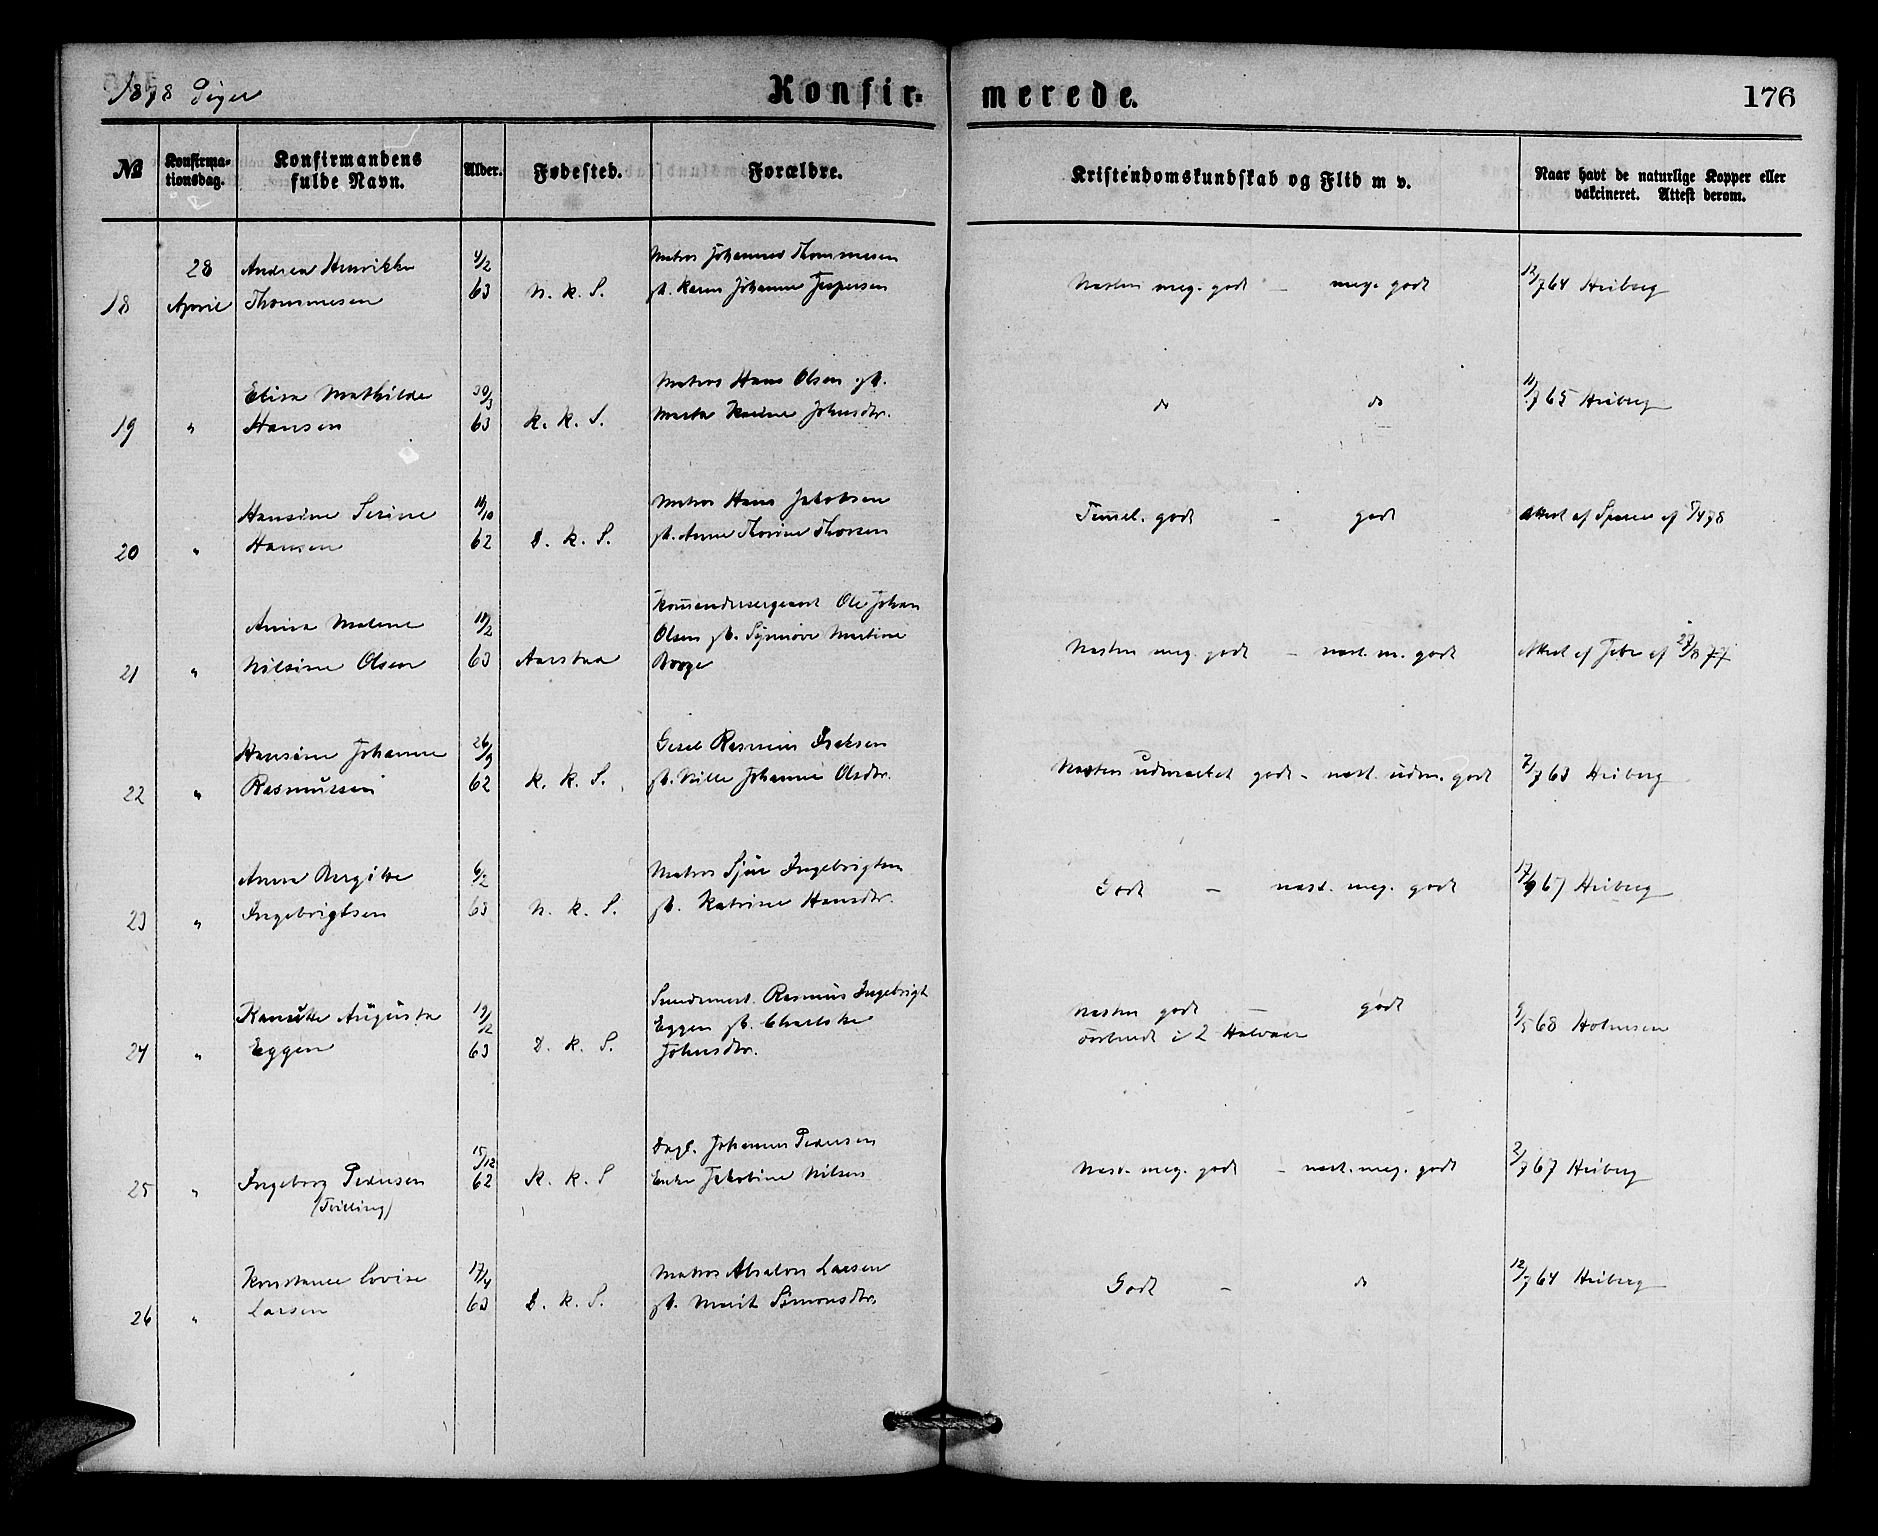 1878 Piger
Konfir= merede. 176
№ Konfirma-tionsdag. Konfirmandens fulde Navn. Alder. Fødested. Forældre. Kristendomskundskab og Flid m v. Naar havt de naturlige Kopper eller vakcineret. Attest derom.
28 Andrea Henrikke 4/2 Matros Johannes Thommesen
18 April Thommesen 63 N. K. S. gt. Karen Johanne Jespersen Næsten meg. godt – meg. godt 12/7 64 Heiberg
Elisa Mathilde 30/3 Matros Hans Olsen gt.
19 " Hansen 63 K. K. S. Marta Karine Johnsdtr. do do 11/7 65 Heiberg
Hansine Serine 11/10 Matros Hans Jakobsen
20 " Hansen 62 D. K. S. gt. Anne Thorine Thorsen Temmel. godt – godt Attest af af 8/4 78
Anna Malene 18/2 Kommandersergeant Ole Johan
Olsen gt. Synnøve Martine
21 " Nilsine Olsen 63 Aarstad Borge Næsten meg. godt – næst. m. godt Attest af af 29/8 77
Hansine Johanne 26/9 Gesel Rasmus Isaksen
22 " Rasmussen 62 K. K. S. gt. Nille Johanne Olsdtr. Næsten udmærket godt – næst. udm. godt 7/7 63 Heiberg
Anna Bergitte 6/2 Matros Sjur Ingebrigtsen
23 " Ingebrigtsen 63 N. K. S. gt. Katrine Hansdtr. Godt – næst. meg. godt 17/9 67 Heiberg
Kanutte Augusta 19/12 Rasmus Ingebrigt
Eggen gt.
24 " Eggen 63 D. K. S. Johnsdtr. Næsten godt – godt 9/5 68 Holmsen
i 2 Halvaar
15/12 Dagl. Johannes Pedersen
25 " Ingeborg Pedersen 62 K. K. S Enke Jakobine Nilsen Næst. meg. godt – næst. meg. godt 2/7 67 Heiberg
(Tvilling)
Konstance Lovise 17/4 Matros Absalon Larsen
26 " Larsen 63 D. K. S. gt. Marit Simonsdtr. Godt – do 12/7 64 Heiberg